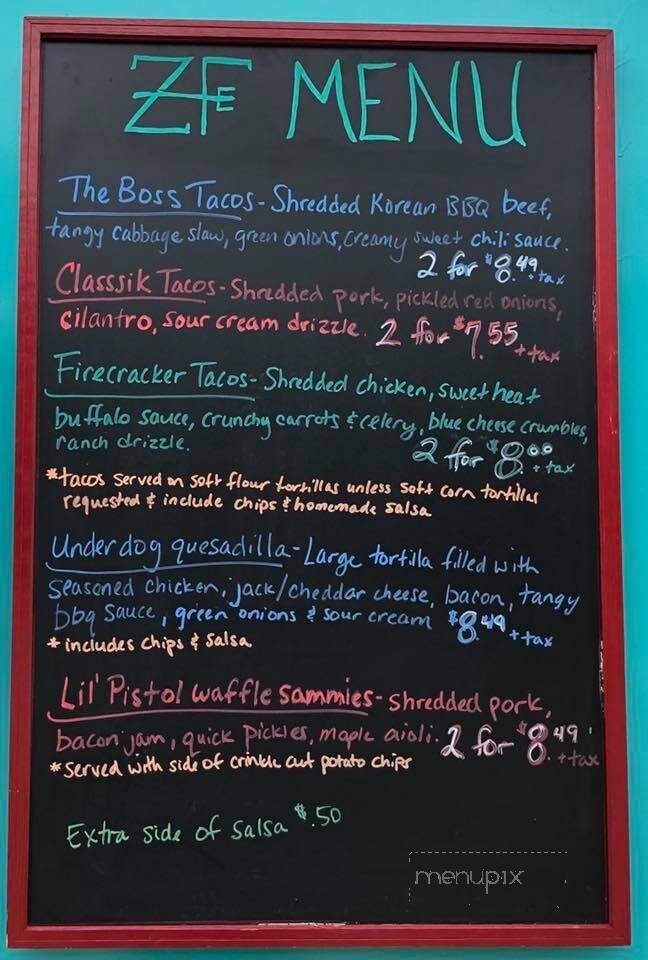 ZFE MENU
The Boss Tacos - Shredded Korean BBQ beef,
tangy cabbage slaw, green onions, creamy sweet chili sauce.
2 for $8.49 + tax
Classsik Tacos - Shredded pork, pickled red onions,
cilantro, sour cream drizzle. 2 for $7.55 + tax
Firecracker Tacos - Shredded chicken, sweet heat
buffalo sauce, crunchy carrots & celery, blue cheese crumbles,
ranch drizzle. 2 for $8.00 + tax
*tacos served on soft flour tortillas unless soft corn tortillas
requested & include chips & homemade salsa
Underdog quesadilla - Large tortilla filled with
seasoned chicken, jack/cheddar cheese, bacon, tangy
bbq sauce, green onions & sour cream $8.49 + tax
*includes chips & salsa
Lil' Pistol waffle sammies - shredded pork,
bacon jam, quick pickles, maple aioli. 2 for $8.49 + tax
*Served with side of crinkle cut potato chips
Extra side of salsa $.50
menupix